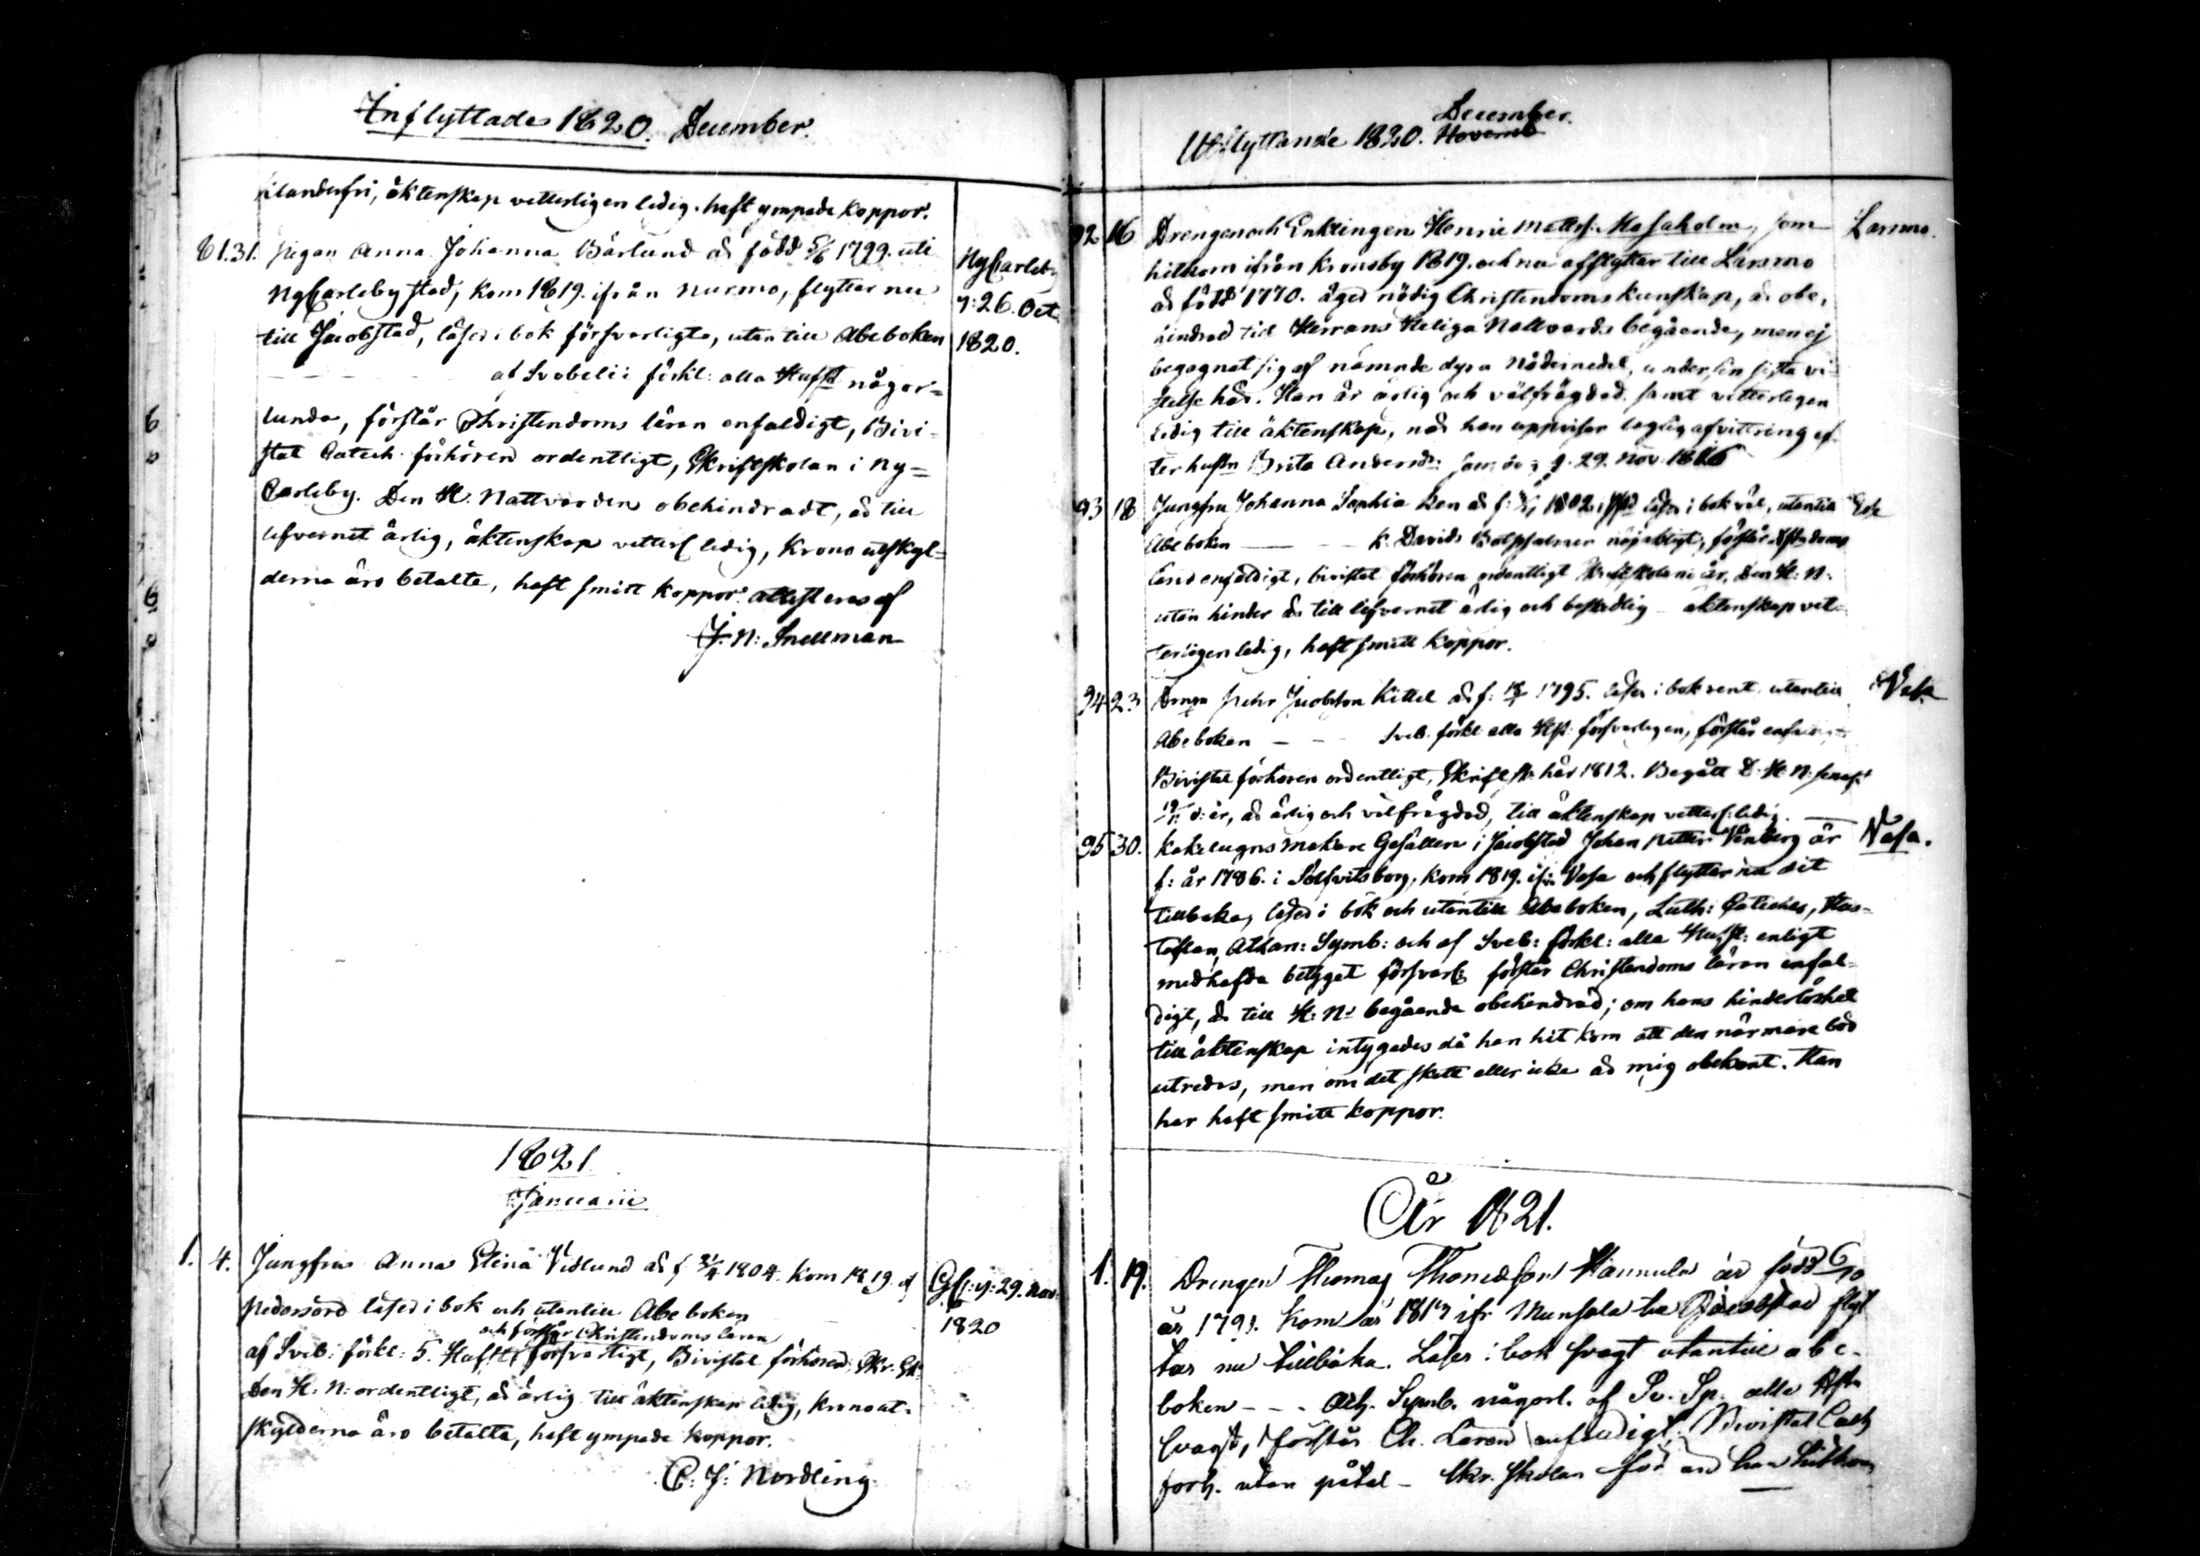 Inflyttade 1820. December.
landsfri, äktenskap vetterligen ledig. haft ympade koppor.
61. 31. Pigan Anna Johanna Bärlund är född 5/6 1799. uti
NyCarleby stad, kom 1819. ifrån Nurmo, flyttar nu
till Jacobstad, läser i bok försvarligt, utan till Abeboken
af Svebelii förkl: alla Hufst någor-
lunda, förstår Christendoms läran enfaldigt, Bivi-
stat Catech. förhören ordentligt, Skriftskolan i Ny-
Carleby. Den H. Nattvarden obehindradt, är till
lefvernet ärlig, äktenskap vetterl ledig, Krono utskyl-
derna äro betalte, haft smitt koppor. attesteras af
J. N: Snellman
NyCarleby
26. Oct.
1820.
1821
Januarii
1. 4. Jungfru Anna Elena Vidlund är f 1804. kom 1819 af
Pedersöre läser i bok och utantill Abeboken
och förstår Christendoms läran
af Sveb: förkl: 5. Hufst: försvarligt, Bivistat förhören, Skr. Sk.
Den H: N: ordentligt, är ärlig till äktenskap ledig, kronout-
skylderna äro betalta, haft ympade koppor.
C: J: Nordling
29. Nov:
1820
December.
Utflyttande 1820. Novemb
92 16 Drengen och Enklingen Henric Matts: Masaholm, som
hitkom ifrån Kronoby 1819. och nu afflyttar till Larsmo
är född 1770. äger nödig Christendoms kunskap, är obe-
hindrad till Herrans Heliga Nattvards begående, men ej
begagnat sig af nämnde dyra Nådemedel, under sin sista vi-
stelse här. Han är ärlig och välfrägdad samt vetterligen
ledig till äktenskap, når han uppviser laglig afvittring ef-
ter hustn Brita Andersdr: som 29. Nov. 1816
Larsmo.
93 18 Jungfru Johanna Sophia är f: 1802, läser i bok väl, utantill
Abeboken — — — k. Davids Botpsalmer nöjaktigt, förstår
läran enfaldigt, bivistat förhören ordentligt Skriftskolan i år, Den H: N:
utan hinder är till lefvernet ärlig och beskedlig – äktenskap vet-
terligen ledig, haft smitt koppor.
94 23 Drengn Pehr Jacobson Kittel är f: 1795. läser i bok rent utantill
Abeboken — — Sveb. förkl alla Hst: försvarligen, förstår
Bivistat förhören ordentligt, Skriftsk. här 1812. Begått D. H. N: senast
är ärlig och välfrägdad, till äktenskap vetterl: ledig.
Vasa
95 30. Kakelugnsmakare Gesällen i Jacobstad Johan Petter Venberg är
f: år 1786. i Sölfvitsborg, kom 1819. ifr: Vasa och flyttar nu dit
tillbaka, läser i bok och utantill Abeboken, Luth: Cateches, Hus-
taflan, Athan: Symb: och af Sveb: förkl: alla Hufst: enligt
medhafde betyget försvarl: förstår Christendoms läran enfal-
digt, är till H: N: begående obehindrad; om hans hinderlöshet
till äktenskap intygades då han hit kom att den närmare bör
utredas, men om det skett eller icke är mig obekant. Han
har haft smitt koppor.
Vasa.
År 1821.
1. 19. Drengen Thomas Thomasson Hannula är född 6/10
år 1791. Kom år 1817 ifr Munsala till Jacobstad flyt
tar nu tillbaka. Läser i bok svagt utantill abe-
boken - - - Ath. Symb. någorl. af Sv. Sp. alla Hst
svagt, förstår Ch. Läran enfaldigt. Bivistat Cath
förh. utan påtal – Skr. Skolan för än han hitkom